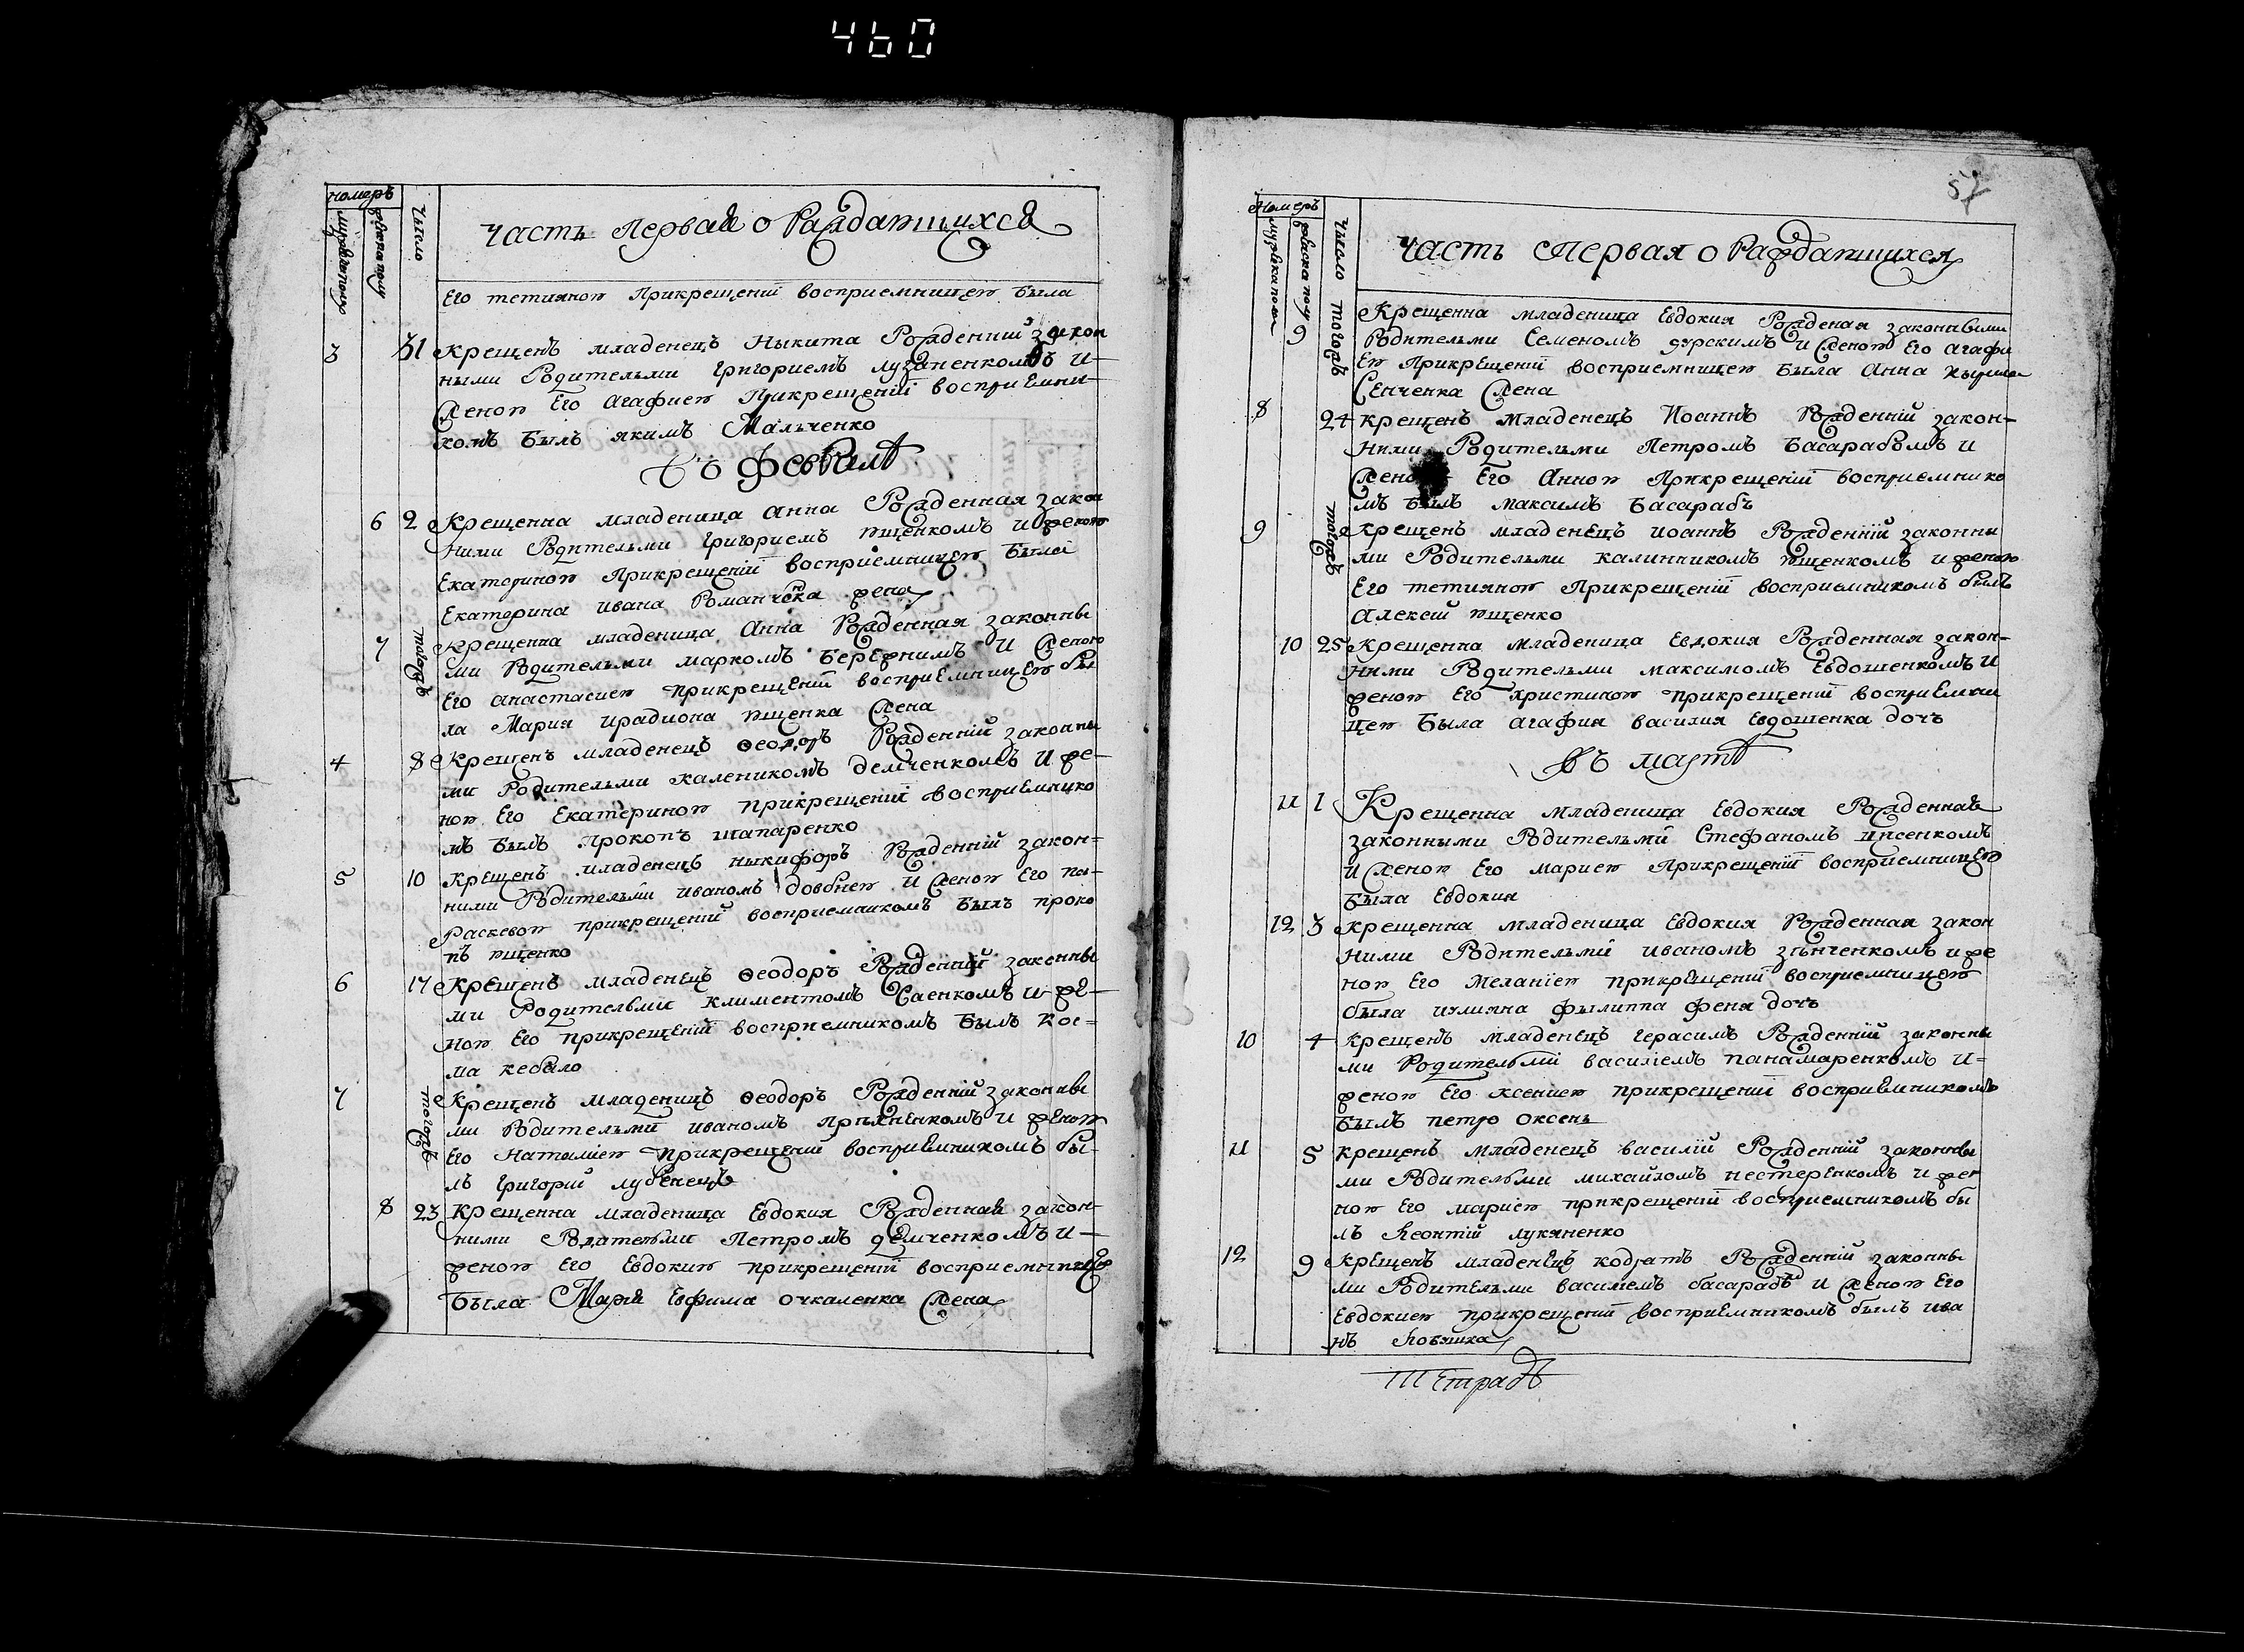 460
номеръ
мужеска полу
женска полу
число
Часть Первая о Раждатшихся
Его тетияноп Прикрещеніи восприемницеп Была
3 31 Крещенъ младенецъ Ныкита Рожденний закон
ными Родительми Григориемъ лузаненкомъ И
женоп Его агафиеп Прикрещеніи восприемни-
комъ Былъ якимъ Мальченко
въ Феврале
6 2 Крещенна младеница Анна Рожденная закон
ними Родительми Григориемъ пщенкомъ и женоп
Екатериноп Прикрещеніи восприемницеп Была
Екатерина Ивана Романченка жена
7 тогожъ Крещенна младеница Анна Рожденная законны
ми Родительми маркомъ Бережнимъ И женоп
Его анастасиеп прикрещеніи восприемницеп бы
ла Мария ирадиона пщенка жена
4 8 Крещенъ младенецъ Ѳеодоръ Рожденній законны
ми Родительми калеником демченкомъ И же-
ноп Его Екатериноп прикрещеніи восприемнико
мъ Былъ Прокопъ шапаренко
5 10 Крещенъ младенецъ ныкифоръ Рожденній закон-
ними Родительми иваномъ довбнеп И женоп Его па-
раскевоп прикрещеніи восприемникомъ Былъ проко
пъ пщенко
6 17 Крещенъ младенецъ Ѳеодоръ Рожденній законны
ми Родительми климентомъ Саенкомъ и же-
ноп Его прикрещеніи восприемникомъ Былъ Кос-
ма кебало
7 тогожъ Крещенъ младенецъ Ѳеодоръ Рожденній законны
ми Родительми иваномъ и женоп
Его Наталиеп прикрещеніи восприемникомъ бы-
лъ григорій лубенецъ
8 23 Крещенна младеница Евдокия Рожденная закон-
ними Родительми Петромъ демченкомъ и
женоп Его Евдокиеп прикрещеніи восприемницеп
Была Мария Евфима очкаленка жена
57
Номеръ
мужеска полу
женска полу
число
Часть Первая о Раждатшихся
9 тогожъ Крещенна младеница Евдокия Рожденая законными
Родительми Семеномъ гурскимъ и женоп Его агафи
еп Прикрещеніи восприемницеп Была Анна
Сенченка жена
8 24 Крещенъ младенецъ Иоаннъ Рожденній закон-
ними Родительми Петромъ Басарабомъ и
женоп Его Анноп Прикрещеніи восприемнико
мъ Былъ максимъ Басарабъ
9 тогожъ Крещенъ младенецъ Иоаннъ Рожденній законны
ми Родительми калинникомъ пщенкомъ и женоп
Его тетияноп Прикрещеніи восприемникомъ былъ
Алексий пщенко
10 25 Крещенна младеница Евдокия Рожденная закон-
ними Родительми максимомъ Евдошенкомъ И
женоп Его христиноп прикрещеніи восприемни
цеп Была агафия василия Евдошенка дочъ
въ марте
11 1 Крещенна младеница Евдокия Рожденная
законными Родительми Стефаномъ
и женоп Его мариеп Прикрещеніи восприемницеп
Была Евдокия
12 3 Крещенна младеница Евдокия Рожденная закон
ними Родительми иваномъ зѣнченкомъ и же
ноп Его Меланіеп прикрещеніи восприемницеп
была иулияна фылиппа феня дочъ
10 4 Крещенъ младенецъ герасимъ Рожденній законны
ми Родительми василіемъ панамаренкомъ И-
женоп Его ксениеп прикрещеніи восприемникомъ
Былъ петро оксень
11 5 Крещенъ младенецъ василій Рожденній законны
ми Родительми михайломъ нестеренкомъ и же
ноп Его мариеп прикрещеніи восприемникомъ бы
лъ Леонтій лукяненко
12 9 Крещенъ младенецъ кодратъ Рожденній законны
ми Родительми василиемъ басарабъ и женоп Его
Евдокиеп прикрещеніи восприемникомъ былъ ива
нъ Ковяшка
Тетрадъ